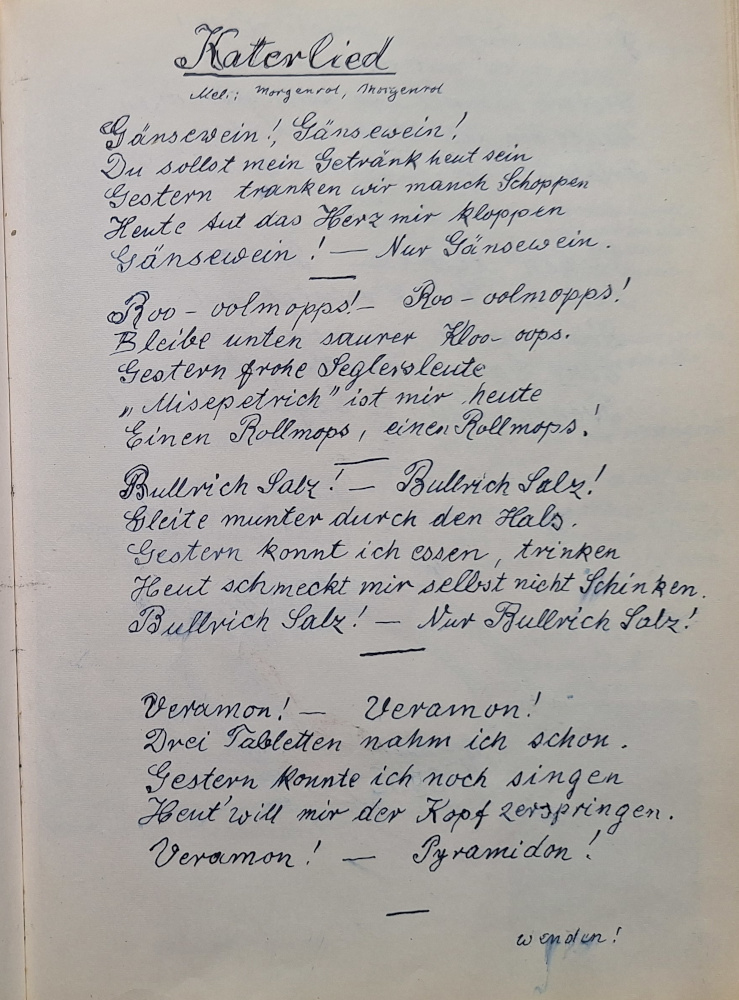 Katerlied
Mel.: Morgenrot, Morgenrot
Gänsewein!, Gänsewein!
Du sollst mein Getränk heut sein
Gestern tranken wir manch Schoppen
Heute tut das Herz mir kloppen
Gänsewein! — Nur Gänsewein.
Roo-oolmopps! — Roo-oolmopps!
Bleibe unten saurer Kloo-oops.
Gestern frohe Seglersleute
„Misepetrich" ist mir heute
Einen Rollmops, einen Rollmops!
Bullrich Salz! — Bullrich Salz!
Gleite munter durch den Hals.
Gestern konnt ich essen, trinken
Heut schmeckt mir selbst nicht Schinken.
Bullrich Salz! — Nur Bullrich Salz!
Veramon! — Veramon!
Drei Tabletten nahm ich schon.
Gestern konnte ich noch singen
Heut' will mir der Kopf zerspringen.
Veramon! — Pyramidon!
wenden!